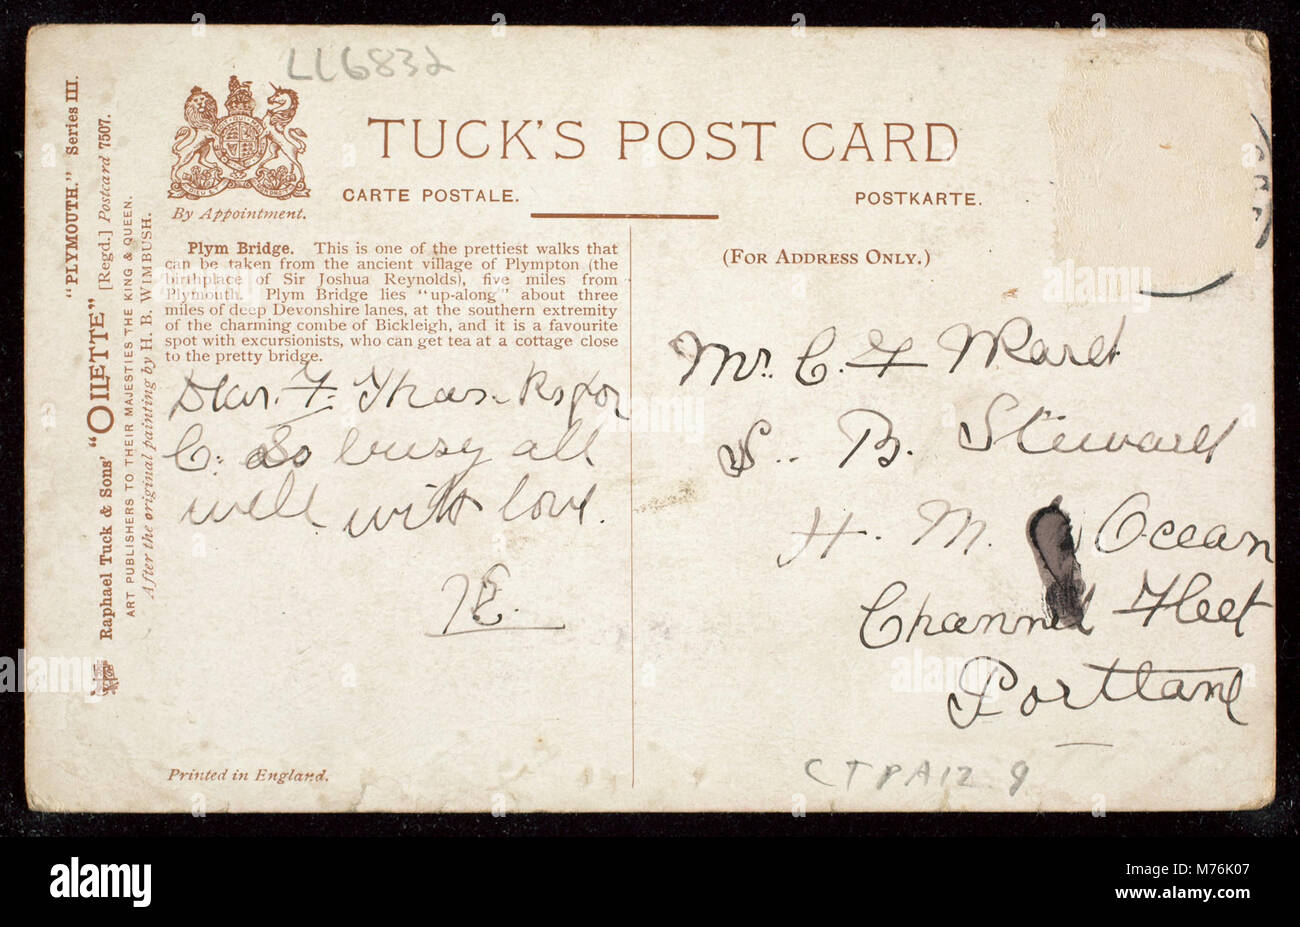 LL6832
TUCK'S POST CARD
CARTE POSTALE.
POSTKARTE.
By Appointment.
(FOR ADDRESS ONLY.)
"PLYMOUTH." Series III.
Raphael Tuck & Sons' "OILETTE" [Regd.] Postcard 7507.
ART PUBLISHERS TO THEIR MAJESTIES THE KING & QUEEN.
After the original painting by H. B. WIMBUSH.
Plym Bridge. This is one of the prettiest walks that
can be taken from the ancient village of Plympton (the
birthplace of Sir Joshua Reynolds), five miles from
Plymouth. Plym Bridge lies "up-along" about three
miles of deep Devonshire lanes, at the southern extremity
of the charming combe of Bickleigh, and it is a favourite
spot with excursionists, who can get tea at a cottage close
to the pretty bridge.
Dear. F. Thanks for
C. so busy all
well with love.
E.
Mr. C. F Ward
S. B. Steward
H. M. Ocean
Channel Fleet
Portland
Printed in England.
CTPA12 9
alamy
alamy
Image ID: M76K07
www.alamy.com